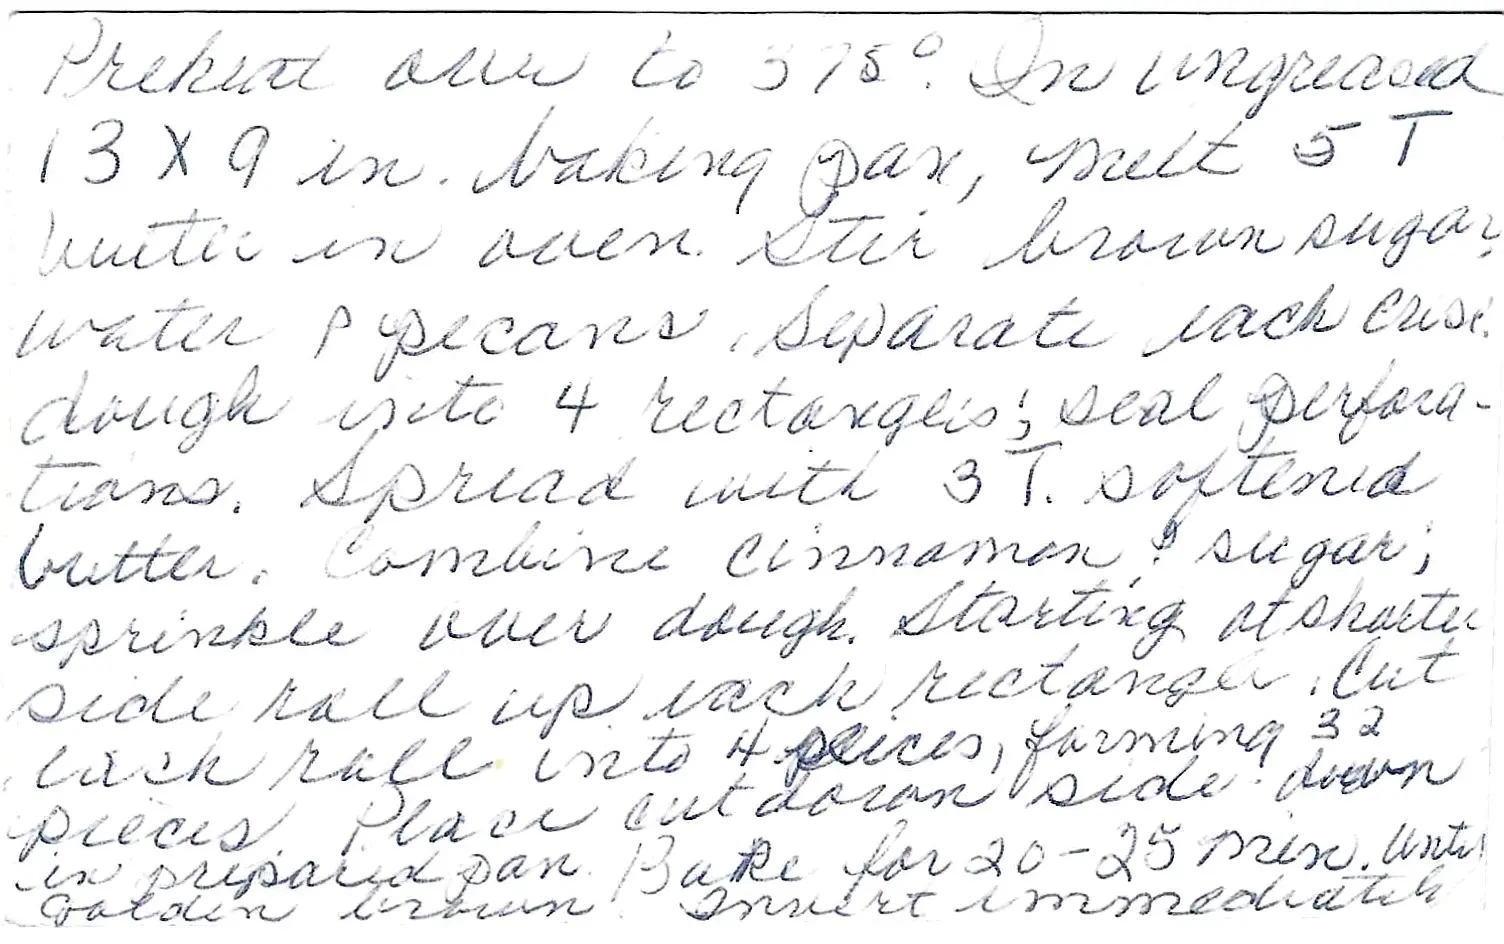 Preheat oven to 375°. In ungreased
13 X 9 in. baking pan, melt 5 T
butter in oven. Stir brown sugar,
water & pecans. Separate each cres.
dough into 4 rectangles; seal perfora-
tions. Spread with 3 T. softened
butter. Combine cinnamon & sugar;
sprinkle over dough. Starting at shorter
side roll up each rectangle. Cut
each roll into 4 slices, forming 32
pieces. Place cut down side down
in prepared pan. Bake for 20-25 min. until
golden brown. Invert immediately